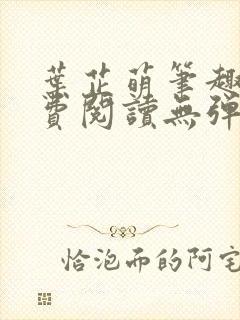 葉芷萌筆趣
費閱讀無彈
恰泡而的阿宅